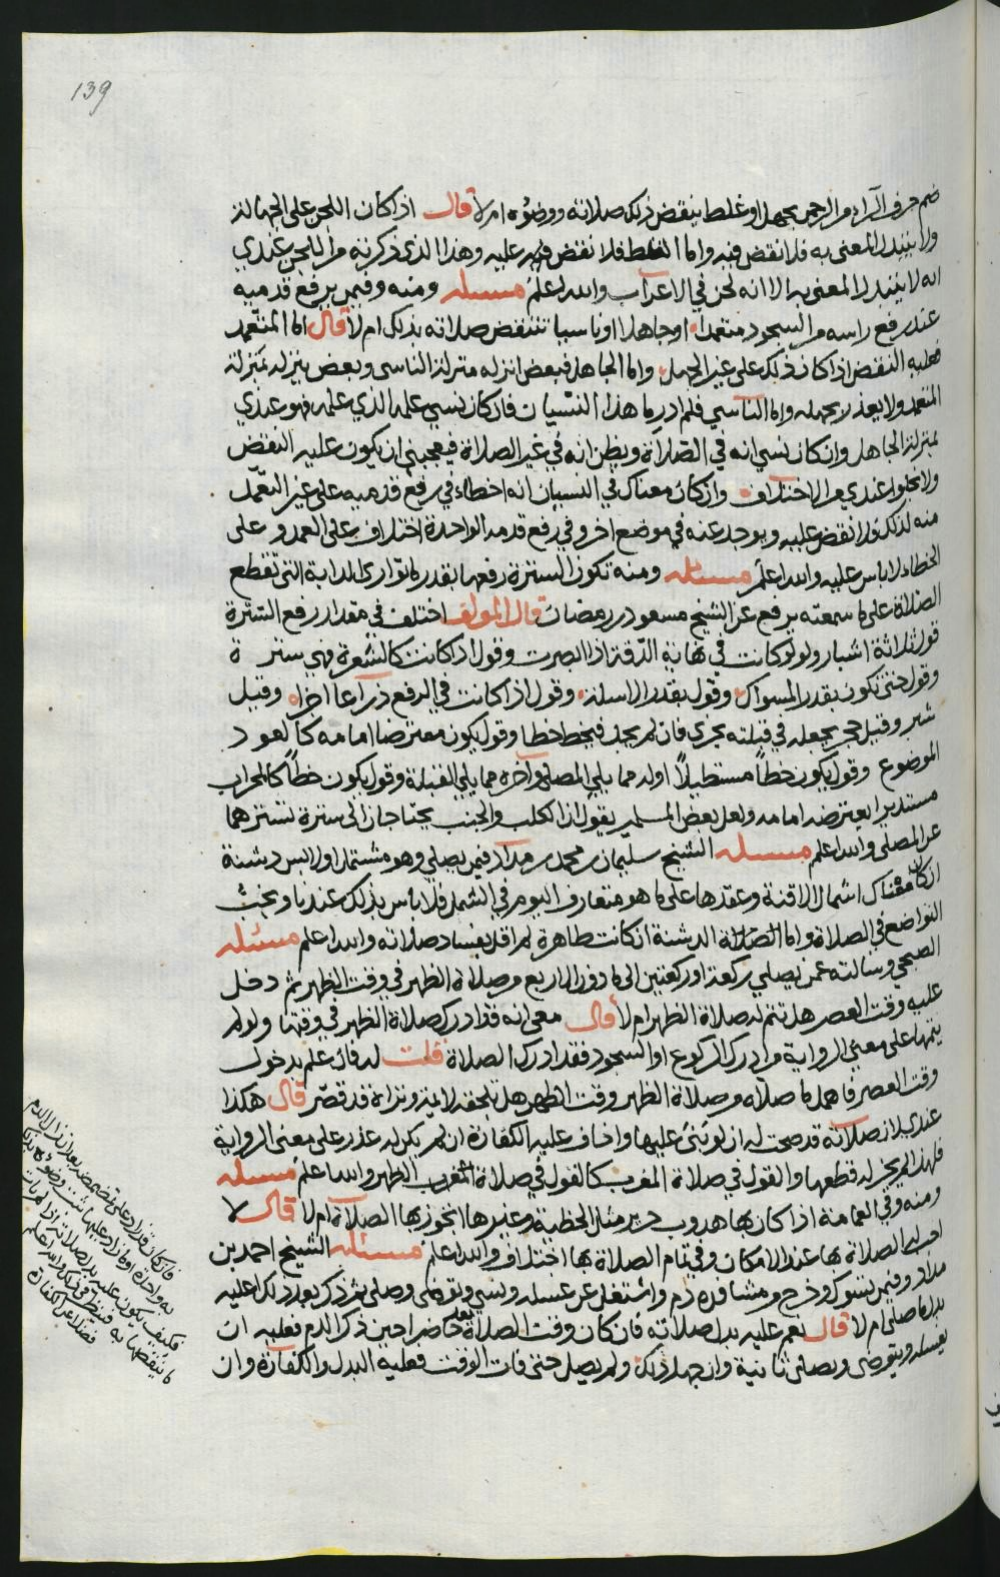 139
ضم حرف الراء من الرحمن بجهل او غلط ينقض ذلك صلاته ووضوءه ام لا قال اذا كان اللحن على الجهالة
ولا يتبدل المعنى به فلا نقض فيه واما الغلط فلا نقض فيه عليه وهذا الذي ذكرته من اللحن عندي
انه لا يتبدل المعنى به الا انه لحن في الاعراب والله اعلم مسئله ومنه وفيمن يرفع قدميه
عند رفع راسه من السجود متعمدا او جاهلا او ناسيا تنتقض صلاته بذلك ام لا قال اما المتعمد
فعليه النقض اذا كان ذلك على غير الجهل واما الجاهل فبعض انزله منزلة الناسي وبعض ينزله بمنزلة
المتعمد ولا يعذر بجهله واما الناسي فلم ادر ما هذا النسيان فان كان نسي علمه الذي علمه فهو عندي
بمنزلة الجاهل وان كان نسي انه في الصلاة ويظن انه في غير الصلاة فيعجبني ان يكون عليه النقض
ولا يخلوا عندي من الاختلاف وان كان معناك في النسيان انه اخطاء في رفع قدميه على غير التعمد
منه لذلك فلا نقض عليه ويوجد عنه في موضع اخر وفي رفع قدمه الواحدة اختلاف على العمد وعلى
الخطاء لا باس عليه والله اعلم مسئله ومنه تكون السترة رفعها بقدر ما توارى الدابة التي تقطع
الصلاة على ما سمعته يرفع عن الشيخ مسعود بن رمضان قال المولف اختلف في مقدار رفع السترة
قول ثلاثة اشبار ولو كانت في نهاية الدقة اذا ابصرت وقول اذا كانت كالشعرة فهي سترة
وقول حتى تكون بقدر المسواك وقول بقدر الاسلة وقول اذا كانت في الرفع ذراعا اجزاه وقيل
شبر وقيل حجر يجعله في قبلته يجزي فان لم يجد فيخط خطا وقول يكون معترضا امامه كالعود
الموضوع وقول يكون خطاً مستطيلاً اوله مما يلي المصلي وآخره مما يلي القبلة وقول يكون خطاً كالمحراب
مستديرا يعترضه امامه ولعل بعض المسلمين يقول ان الكلب والجنب يحتاجان الى سترة تسترهما
عن المصلي والله اعلم مسئله الشيخ سليمان بن محمد بن مداد فيمن يصلي وهو مشتمل او لابس دشنة
ان كان معناك اشمال الاقنة وعقدها على ما هو متعارف اليوم في الشمل فلا باس بذلك عندنا ويجب
التواضع في الصلاة واما الصلاة الدشنة ان كانت طاهرة لم اقل بفساد صلاته والله اعلم مسئله
الصبحي وسالته عمن يصلي ركعة او ركعتين الى ما دون الاربع من صلاة الظهر في وقت الظهر ثم دخل
عليه وقت العصر هل تتم له صلاة الظهر ام لا قال معي انه قد ادرك صلاة الظهر في وقتها ولو لم
يتمها على معنى الرواية من ادرك الركوع او السجود فقد ادرك الصلاة قلت له فان علم بدخول
وقت العصر فاهمل ما صلاه من صلاة الظهر وقت الظهر هل تلحقه لايمة وتراه قد قصر قال هكذا
عندي لان صلاته قد صحت له ان لو بنى عليها واخاف عليه الكفارة ان لم يكن له عذر على معنى الرواية
فلهذا لم يجز له قطعها والقول في صلاة المغرب كالقول في صلاة الظهر والله اعلم مسئله
ومنه وفي العمامة اذا كان بها هدوب حرير مثل الخظية وغيرها اتجوز بها الصلاة ام لا قال لا
احب الصلاة بها عند الامكان وفي تمام الصلاة بها اختلاف والله اعلم مسئله الشيخ احمد بن
مداد وفيمن تسوك وخرج من مشافره دم واشتغل عن غسله ونسي وتوضى وصلى ثم ذكر بعد ذلك اعليه
بدل ما صلى ام لا قال نعم عليه بدل صلاته فان كان وقت الصلاة بعد حاضرا حين ذكر الدم فعليه ان
يغسله ويتوضى ويصلي ثانية وان جهل ذلك ولم يصل حتى فات الوقت فعليه البدل والكفارة وان